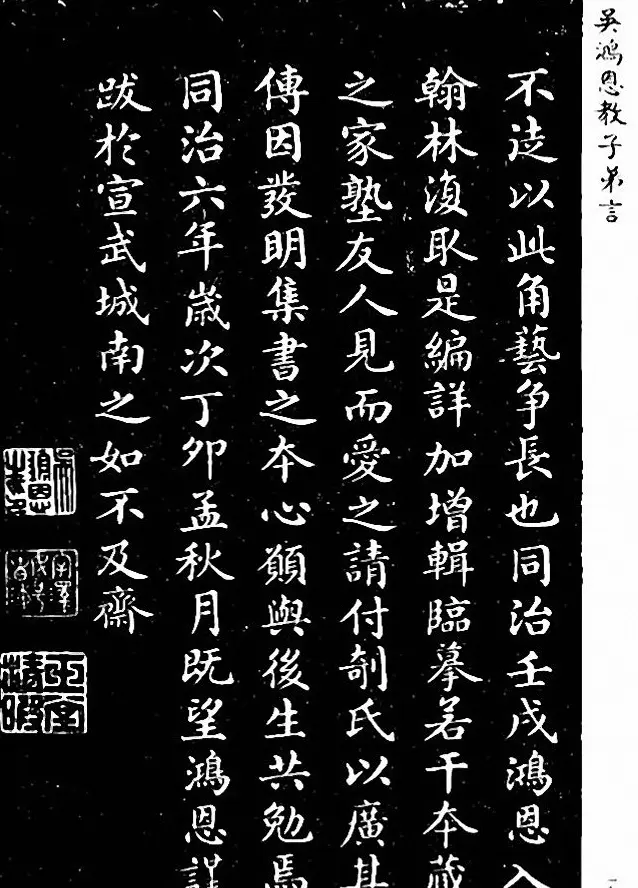 吳鴻恩教子弟言
不徒以此角藝争長也同治壬戌鴻恩入
翰林復取是編詳加增輯臨摹若干本藏
之家塾友人見而愛之請付剞氏以廣其
傳因發明集書之本心願與後生共勉焉
同治六年歲次丁卯孟秋月既望鴻恩謹
跋於宣武城南之如不及齋